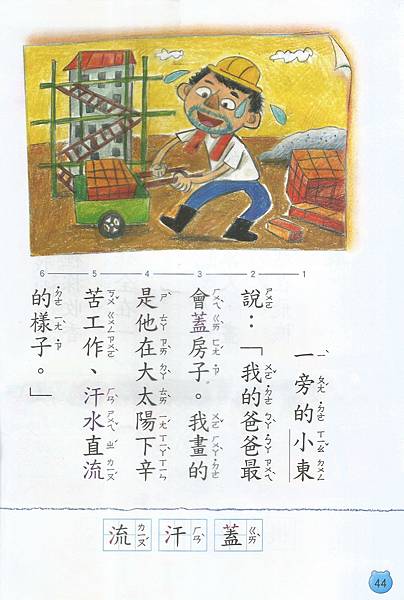 1 2 3 4 5 6
一旁的小東
說：「我的爸爸最
會蓋房子。我畫的
是他在大太陽下辛
苦工作、汗水直流
的樣子。」
蓋 ㄍㄞˋ
汗 ㄏㄢˋ
流 ㄌㄧㄡˊ
44